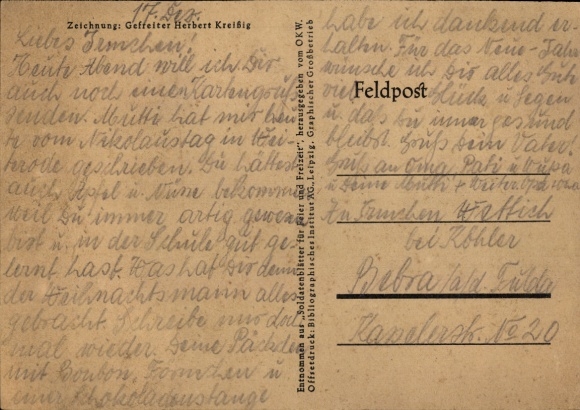 17. Dez.
Zeichnung: Gefreiter Herbert Kreißig
Liebes Irmchen!
Heute Abend will ich Dir
auch noch einen Kartengruß
senden. Mutti hat mir heu-
te vom Nikolaustag in Wei-
terode geschrieben. Du hättest
auch Äpfel u. Nüsse bekommen
weil Du immer artig gewesen
bist u. in der Schule gut ge-
lernt hast. Was hat Dir denn
der Weihnachtsmann alles
gebracht. Schreibe mir doch
mal wieder. Deine Päckchen
mit Bonbon, Förmchen u
einer Schokoladenstange
Entnommen aus „Soldatenblätter für Feier und Freizeit", herausgegeben vom OKW.
Offsetdruck: Bibliographisches Institut AG., Leipzig, Graphischer Großbetrieb
habe ich dankend er-
halten. Für das Neue-Jahr
wünsche ich Dir alles Gute
viel Glück u Segen
u. das Du immer gesund
bleibst. Gruß Dein Vater.
Gruß an Oma, Pati u
u Deine Mutti
Feldpost
An Irmchen Wettich
bei Köhler
Bebra /a/d. Fulda
Kasselerstr. No 20